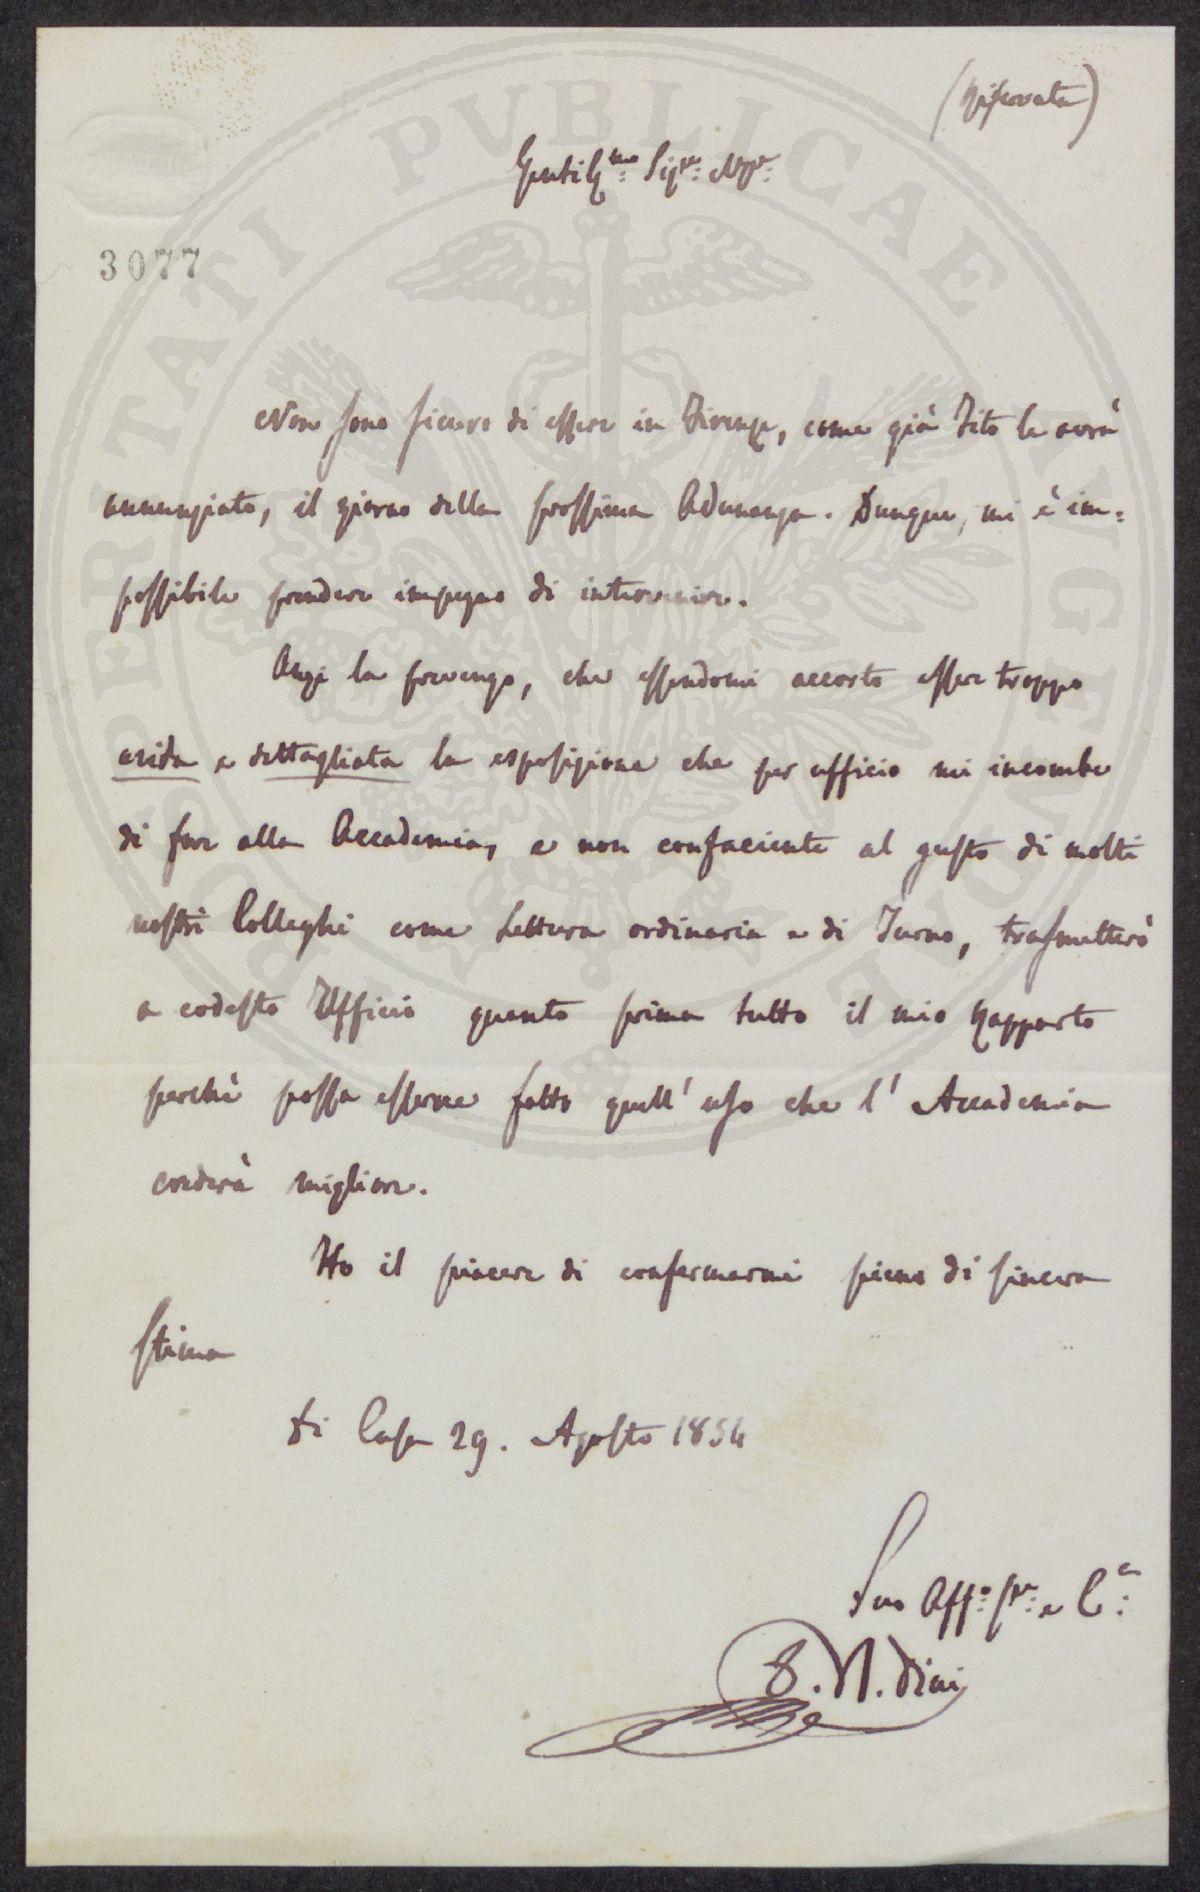 (Riservata)
Gentilmo: Sigre: Npr:
3077
Non sono sicuro di essere in Firenze, come già Tito le avrà
annunziato, il giorno della prossima Adunanza. Dunque, mi è im=
possibile prendere impegno di intervenire.
Anzi la prevengo, che essendomi accorto esser troppo
arida e dettagliata la esposizione che per ufficio mi incombe
di fare alla Accademia, e non confaciente al gusto di molti
nostri Colleghi come Lettura ordinaria e di Turno, trasmetterò
a codesto Ufficio quanto prima tutto il mio Rapporto
perchè possa esserne fatto quell' uso che l' Accademia
crederà migliore.
Ho il piacere di confermarmi pieno di sincera
stima
Di Casa 29. Agosto 1854
Suo Affo: Sre: e Ca:
Dini
PROSPERITATI PVBLICAE AVGENDAE